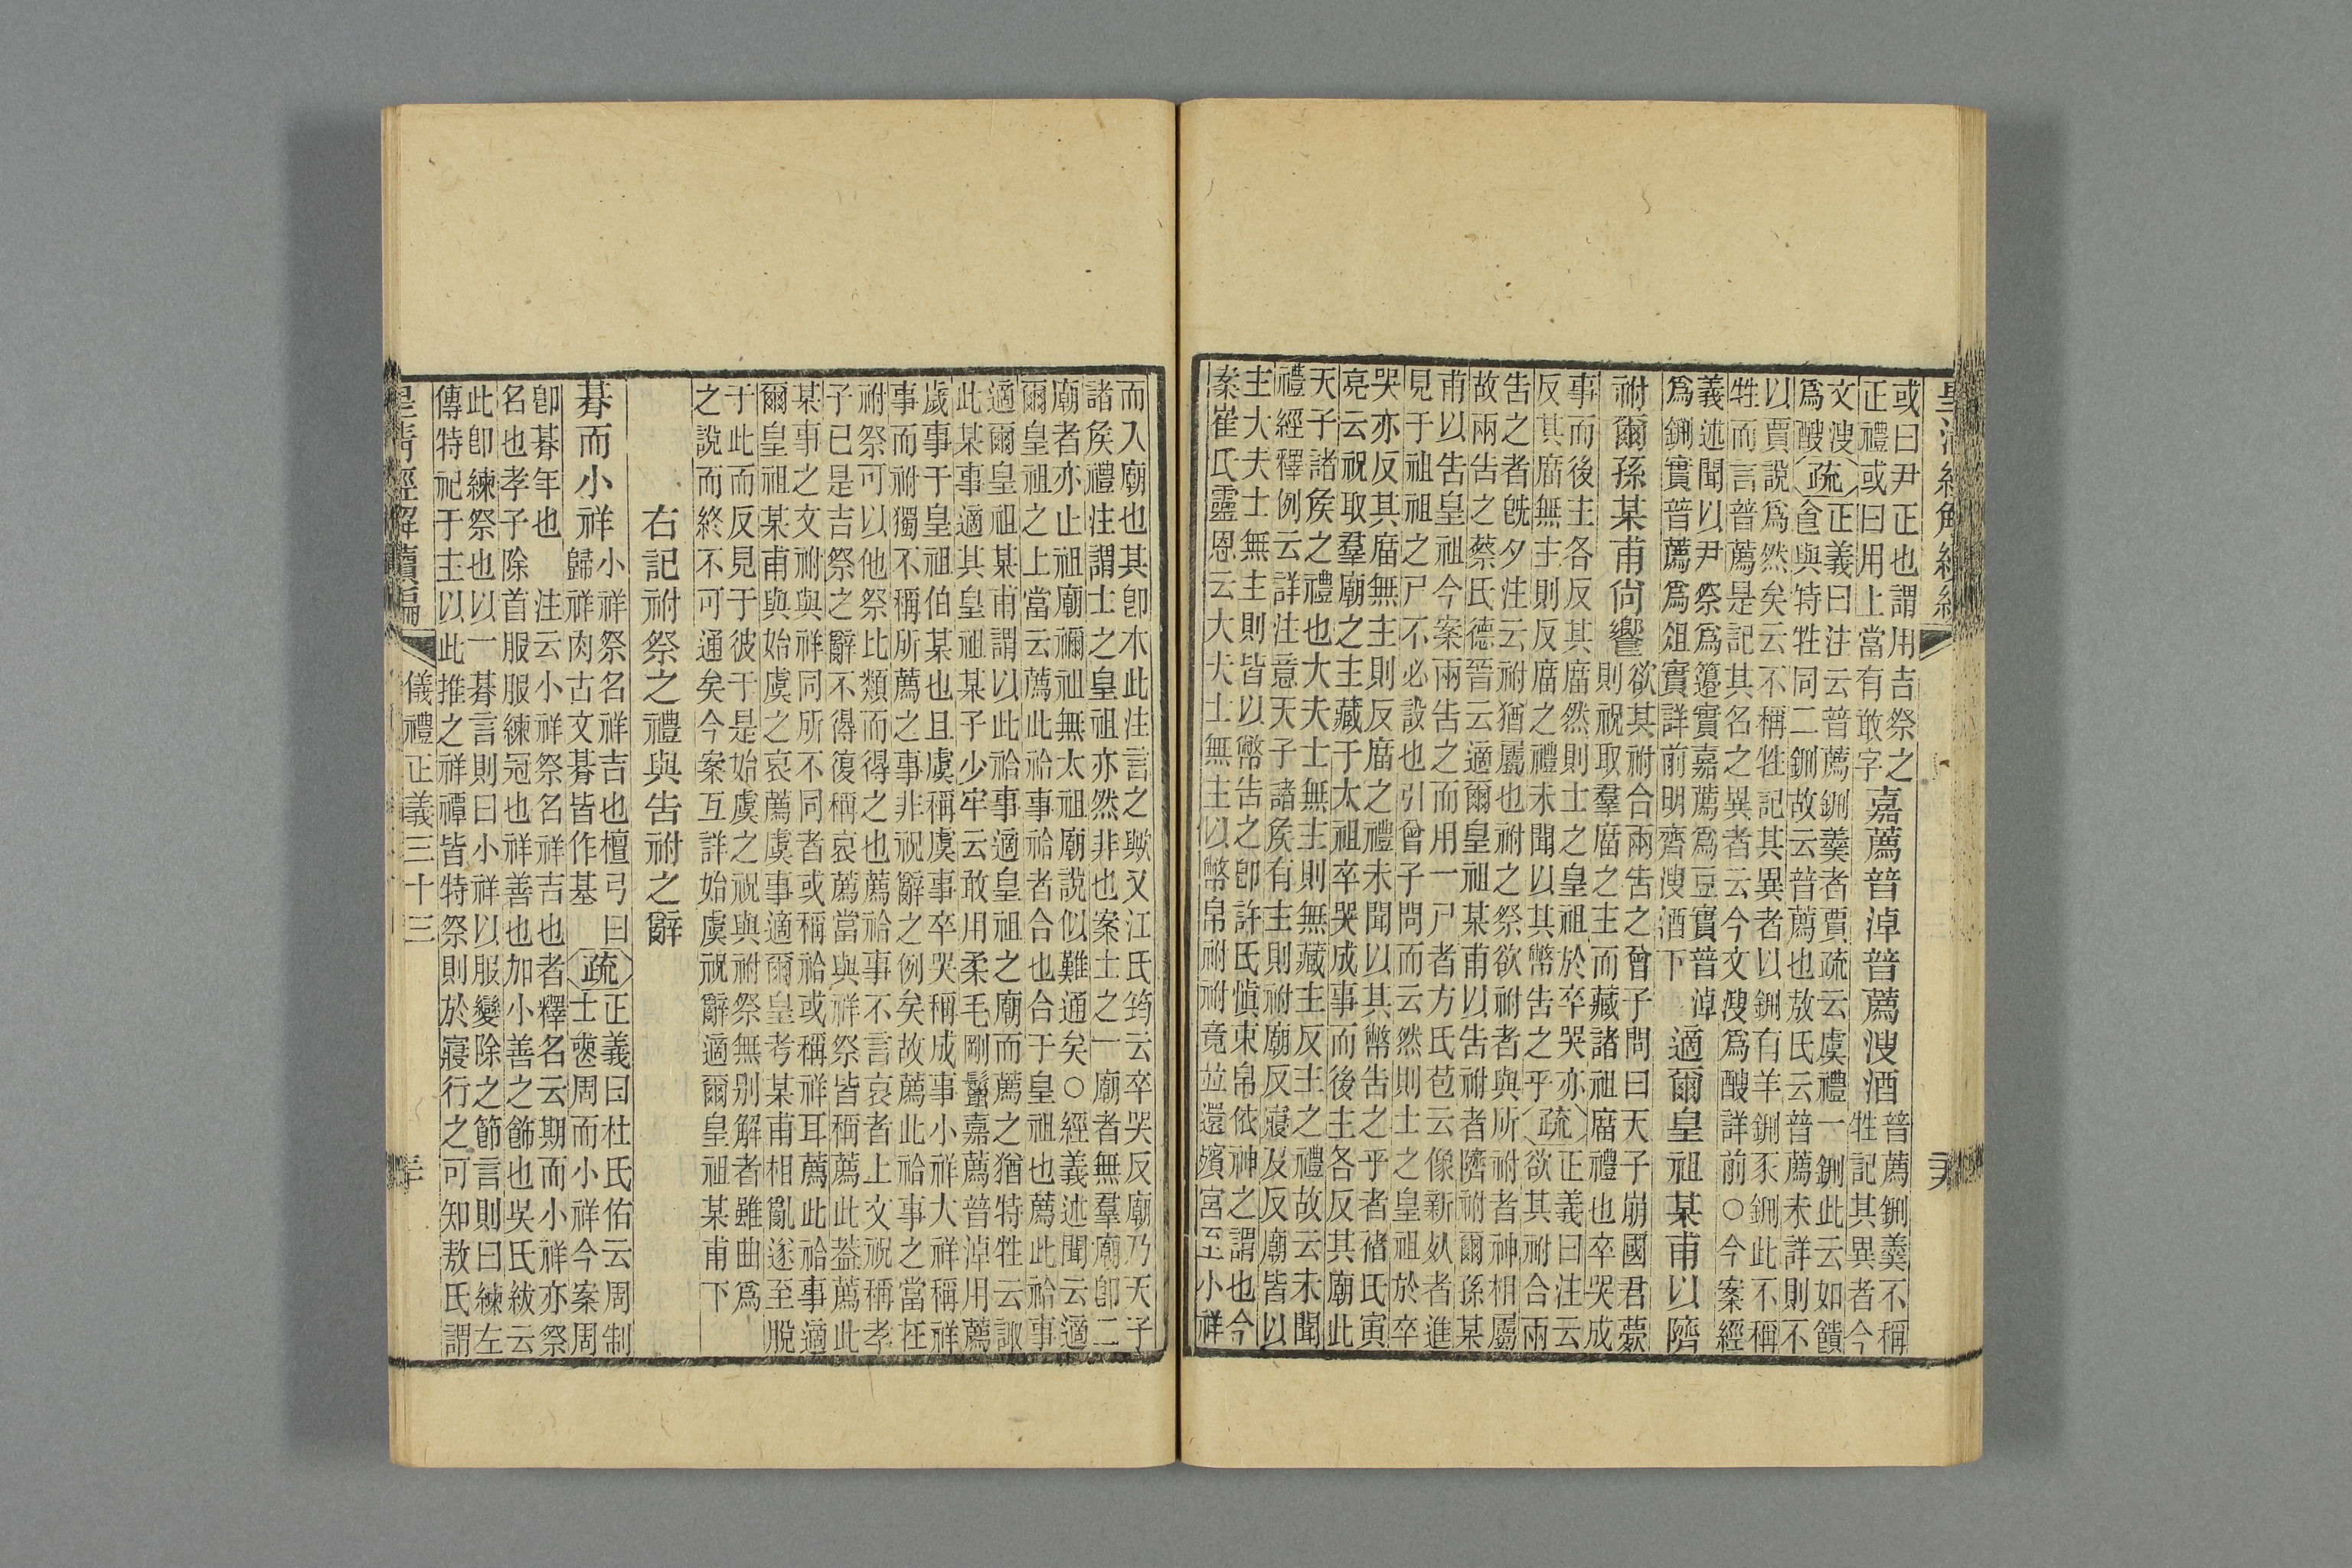 或曰尹正也謂用吉祭之
正禮或曰用上當有敢字
嘉薦普淖普薦溲酒
普薦鉶羹不稱
牲記其異者今
文溲
爲酸
疏
正義曰注云普薦鉶羹者賈疏云虞禮一鉶此云如饋
食與特牲同二鉶故云普薦也敖氏云普薦未詳則不
以賈說爲然矣云不稱牲記其異者以鉶有羊鉶豕鉶此不稱
牲而言普薦是記其名之異者云今文溲爲酸詳前○今案經
義述聞以尹祭爲籩實嘉薦爲豆實普淖
爲鉶實普薦爲俎實詳前明齊溲酒下
適爾皇祖某甫以隮
祔爾孫某甫尙饗
欲其祔合兩告之曾子問曰天子崩國君薨
則祝取羣廟之主而藏諸祖廟禮也卒哭成
事而後主各反其廟然則士之皇祖於卒哭亦
反其廟無主則反廟之禮未聞以其幣告之乎
疏
正義曰注云
欲其祔合兩
告之者旣夕注云祔猶屬也祔之祭欲祔者與所祔者神相屬
故兩告之蔡氏德晉云適爾皇祖某甫以告祔者隮祔爾孫某
甫以告皇祖今案兩告之而用一尸者方氏苞云像新者進
見于祖祖之尸不必設也引曾子問而云然則士之皇祖於卒
哭亦反其廟無主則反廟之禮未聞以其幣告之乎者褚氏寅
亮云祝取羣廟之主藏于太祖卒哭成事而後主各反其廟此
天子諸矦之禮也大夫士無主則無藏主反主之禮故云未聞
禮經釋例云詳注意天子諸矦有主則祔廟反寢及反廟皆以
主大夫士無主則皆以幣告之卽許氏愼束帛依神之謂也今
案崔氏靈恩云大夫士無主以幣帛祔祔竟並還殯宮至小祥
而入廟也其卽木此注言之歟又江氏筠云卒哭反廟乃天子
諸矦禮注謂士之皇祖亦然非也案士之一廟者無羣廟卽二
廟者亦止祖廟禰祖無太祖廟說似難通矣○經義述聞云適
爾皇祖之上當云薦此祫事祫者合也合于皇祖也薦此祫事
適爾皇祖某甫謂以此祫事適皇祖之廟而薦之猶特牲云諏
此某事適其皇祖某子少牢云敢用柔毛剛鬣嘉薦普淖用薦
歲事于皇祖伯某也且虞稱虞事卒哭稱成事小祥大祥稱祥
事而祔獨不稱所薦之事非祝辭之例矣故薦此祫事之當在
祔祭可以他祭比類而得之也薦祫事不言哀者上文祝稱孝
子已是吉祭之辭不得復稱哀薦當與祥祭皆稱薦此葢薦此
某事之文祔與祥同所不同者或稱祫或稱祥耳薦此祫事適
爾皇祖某甫與始虞之哀薦虞事適爾皇考某甫相亂遂至脫
于此而反見于彼于是始虞之祝與祔祭無別解者雖曲爲
之說而終不可通矣今案互詳始虞祝辭適爾皇祖某甫下
右記祔祭之禮與告祔之辭
朞而小祥
小祥祭名祥吉也檀弓曰
歸祥肉古文朞皆作基
疏
正義曰杜氏佑云周制
士䘮周而小祥今案周
卽朞年也　注云小祥祭名祥吉也者釋名云期而小祥亦祭
名也孝子除首服服練冠也祥善也加小善之飾也吳氏紱云
此卽練祭也以一朞言則曰小祥以服變除之節言則曰練左
傳特祀于主以此推之祥禫皆特祭則於寢行之可知敖氏謂
皇清經解續編
儀禮正義三十三